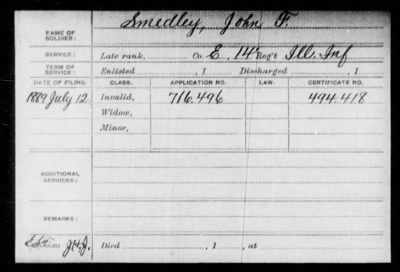 NAME OF SOLDIER: Smedley, John F.
SERVICE: Late rank, Co. E, 14 Reg't Ill. Inf
TERM OF SERVICE: Enlisted , 1 Discharged , 1
DATE OF FILING. CLASS. APPLICATION NO. LAW. CERTIFICATE NO.
1889 July 12 Invalid, 716.496 494.418
Widow,
Minor,
ADDITIONAL SERVICES:
REMARKS:
Died , 1 , at